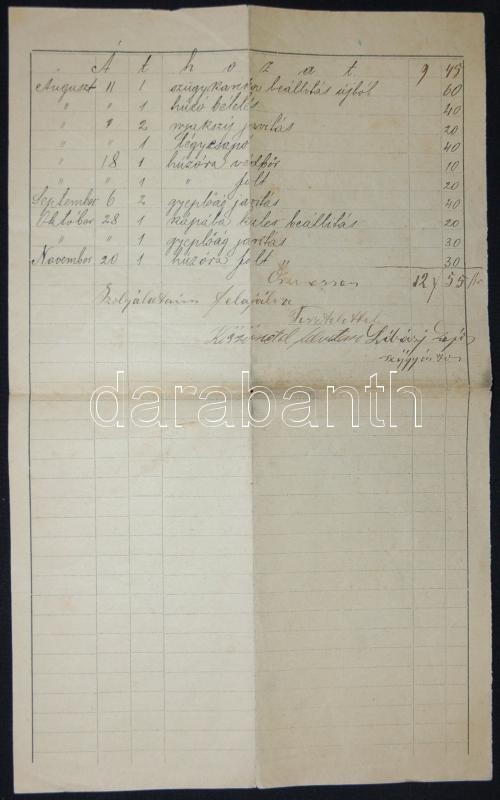 Áthozat 9 45
Auguszt 11 1 szügykarika beállitás ujból 60
" " 1 húzó bélelés 40
" " 2 nyakszij javitás 20
" " 1 légycsapó 40
" 18 1 húzóra védbőr 10
" " 1 " folt 20
September 6 2 gyeplőág javitás 40
Október 28 1 kápába kulcs beállitás 20
" " 1 gyeplőág javitás 30
November 20 1 húzóra folt 30
Összesen 12 55
Szolgálataim felajálva
Tisztelettel
Lajos
szijgyártó
darabanth